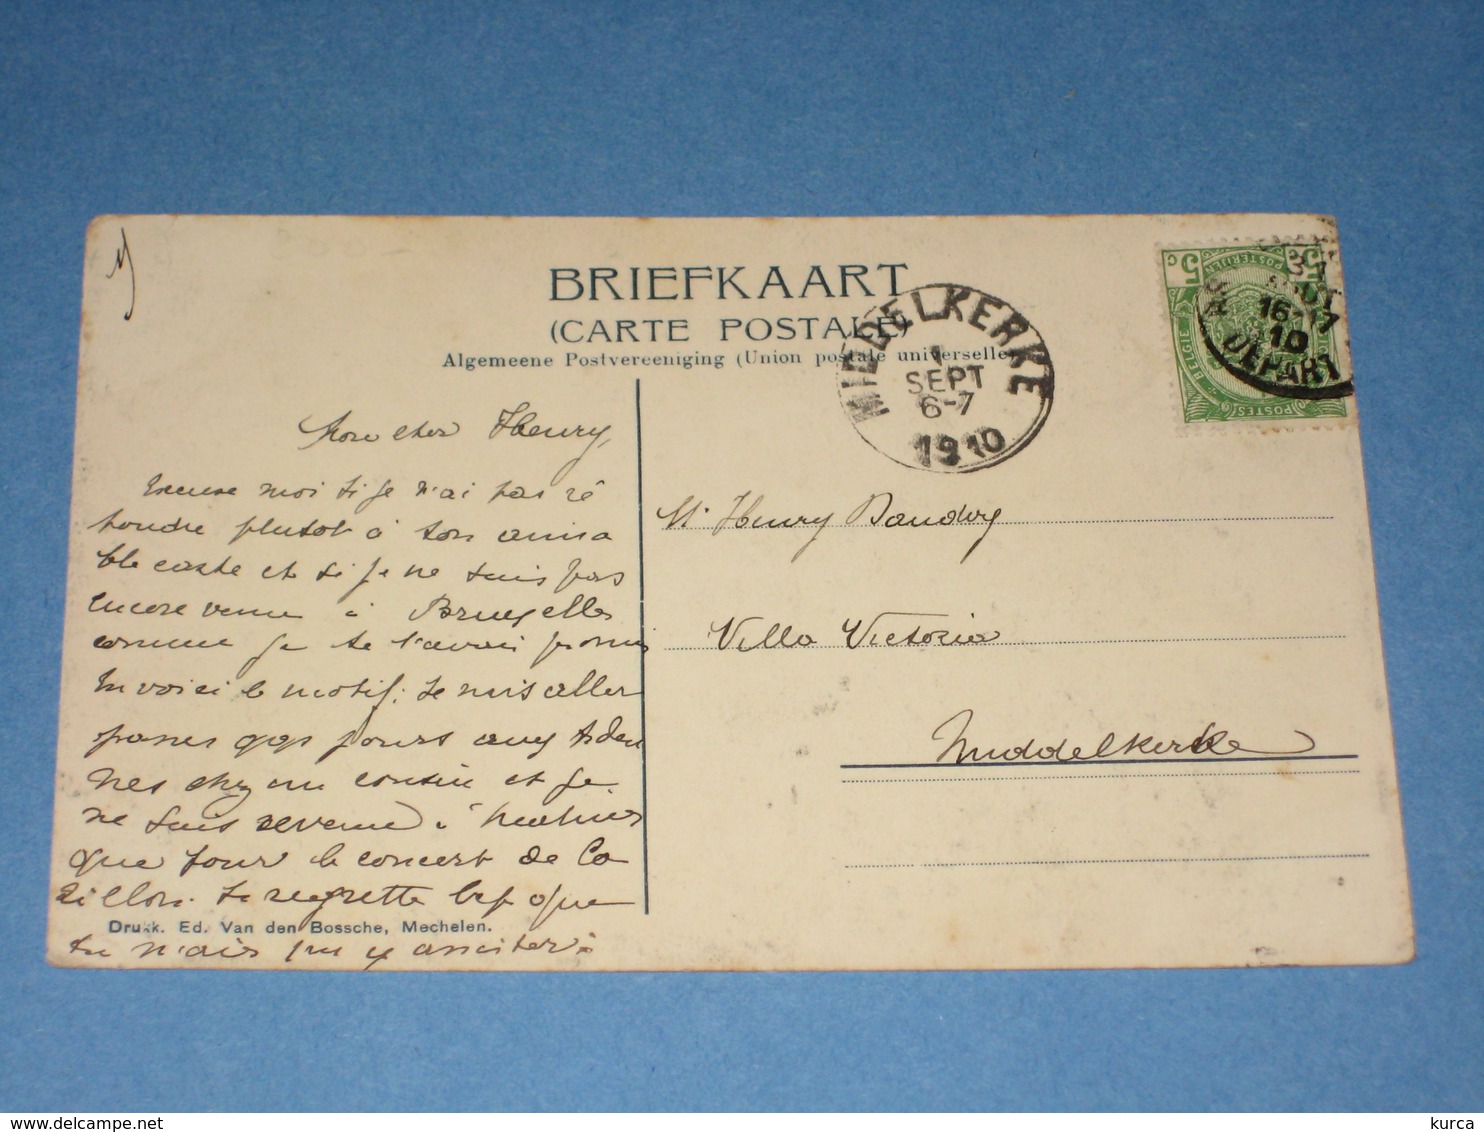 BRIEFKAART
(CARTE POSTALE)
Algemeene Postvereeniging (Union postale universelle)
MIDDELKERKE
1
SEPT
6-7
1910
5 c
5
POSTERIJEN
BELGIE
POSTES
31
AOUT
16-17
10
DEPART
Mon cher Henry,
Excuse moi si je n'ai pas ré
pondre plutot à ton aima
ble carte et si je ne suis pas
encore venu à Bruxelles
comme je te l'avais promis
En voici le motif: Je suis aller
passer qqs jours aux Arden
nes chez un cousin et je
ne suis revenu à Malines
que pour le concert de Ca
rillon. Je regrette bcp que
Drukk. Ed. Van den Bossche, Mechelen.
tu n'ais pu y assister.
Mr Henry Baudry
Villa Victoria
Middelkerke
delcampe.net
kurca